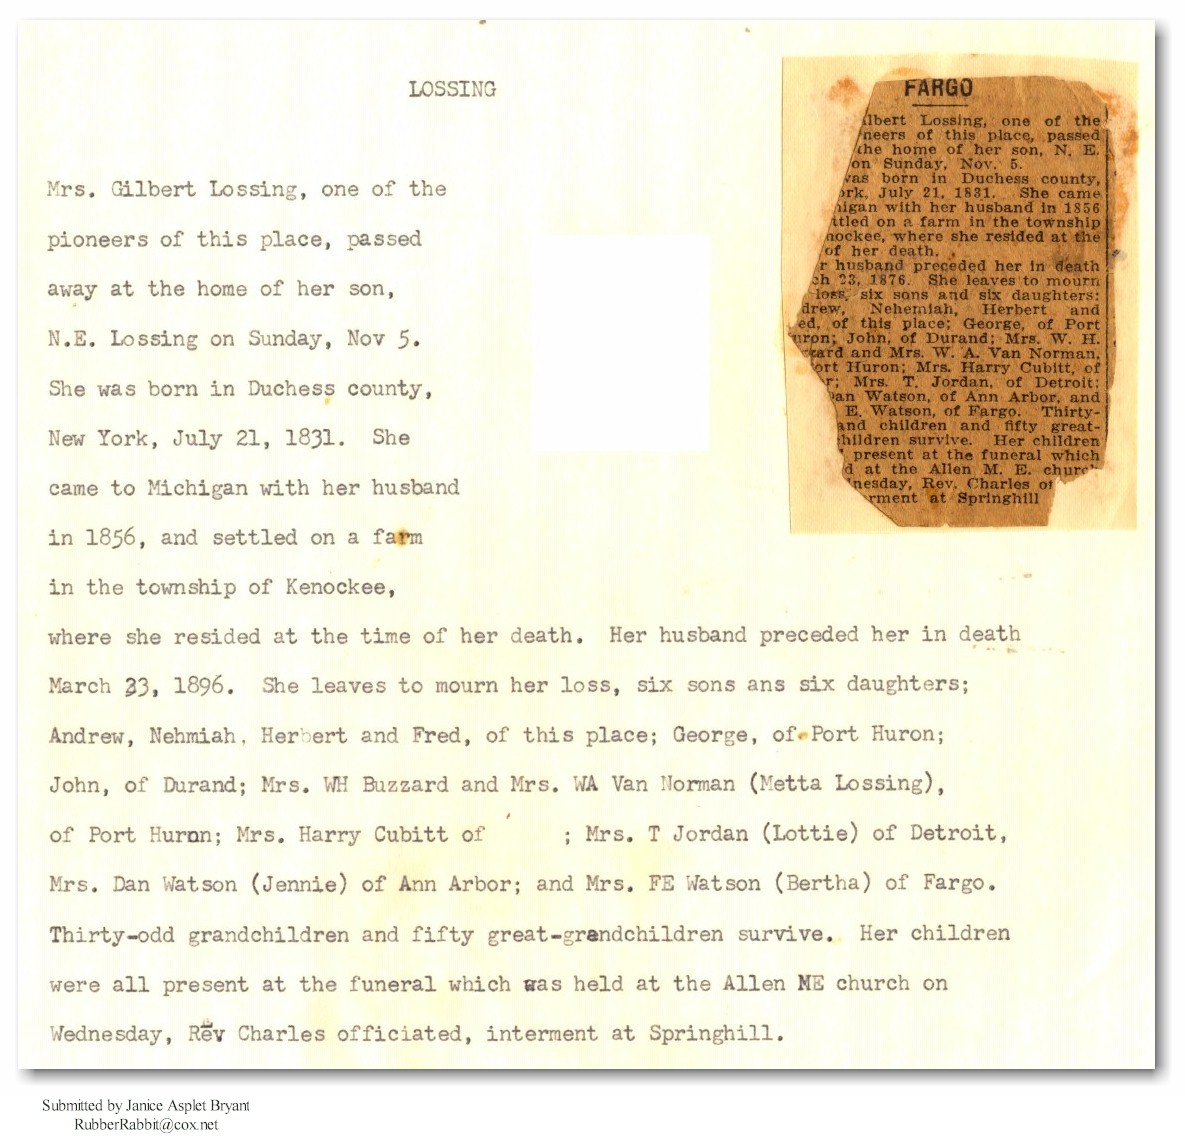 LOSSING
Mrs. Gilbert Lossing, one of the
pioneers of this place, passed
away at the home of her son,
N.E. Lossing on Sunday, Nov 5.
She was born in Duchess county,
New York, July 21, 1831. She
came to Michigan with her husband
in 1856, and settled on a farm
in the township of Kenockee,
where she resided at the time of her death. Her husband preceded her in death
March 23, 1896. She leaves to mourn her loss, six sons ans six daughters;
Andrew, Nehmiah, Herbert and Fred, of this place; George, of Port Huron;
John, of Durand; Mrs. WH Buzzard and Mrs. WA Van Norman (Metta Lossing),
of Port Huron; Mrs. Harry Cubitt of ; Mrs. T Jordan (Lottie) of Detroit,
Mrs. Dan Watson (Jennie) of Ann Arbor; and Mrs. FE Watson (Bertha) of Fargo.
Thirty-odd grandchildren and fifty great-grandchildren survive. Her children
were all present at the funeral which was held at the Allen ME church on
Wednesday, Rev Charles officiated, interment at Springhill.
FARGO
lbert Lossing, one of the
neers of this place, passed
the home of her son, N. E.
on Sunday, Nov. 5.
was born in Duchess county,
ork, July 21, 1831. She came
igan with her husband in 1856
ttled on a farm in the township
nockee, where she resided at the
of her death.
r husband preceded her in death
ch 23, 1876. She leaves to mourn
loss, six sons and six daughters:
drew, Nehemiah, Herbert and
ed, of this place; George, of Port
uron; John, of Durand; Mrs. W. H.
zard and Mrs. W. A. Van Norman,
ort Huron; Mrs. Harry Cubitt, of
r; Mrs. T. Jordan, of Detroit;
Dan Watson, of Ann Arbor, and
E. Watson, of Fargo. Thirty-
and children and fifty great-
hildren survive. Her children
present at the funeral which
d at the Allen M. E. church
nesday, Rev. Charles of
rment at Springhill
Submitted by Janice Asplet Bryant
RubberRabbit@cox.net